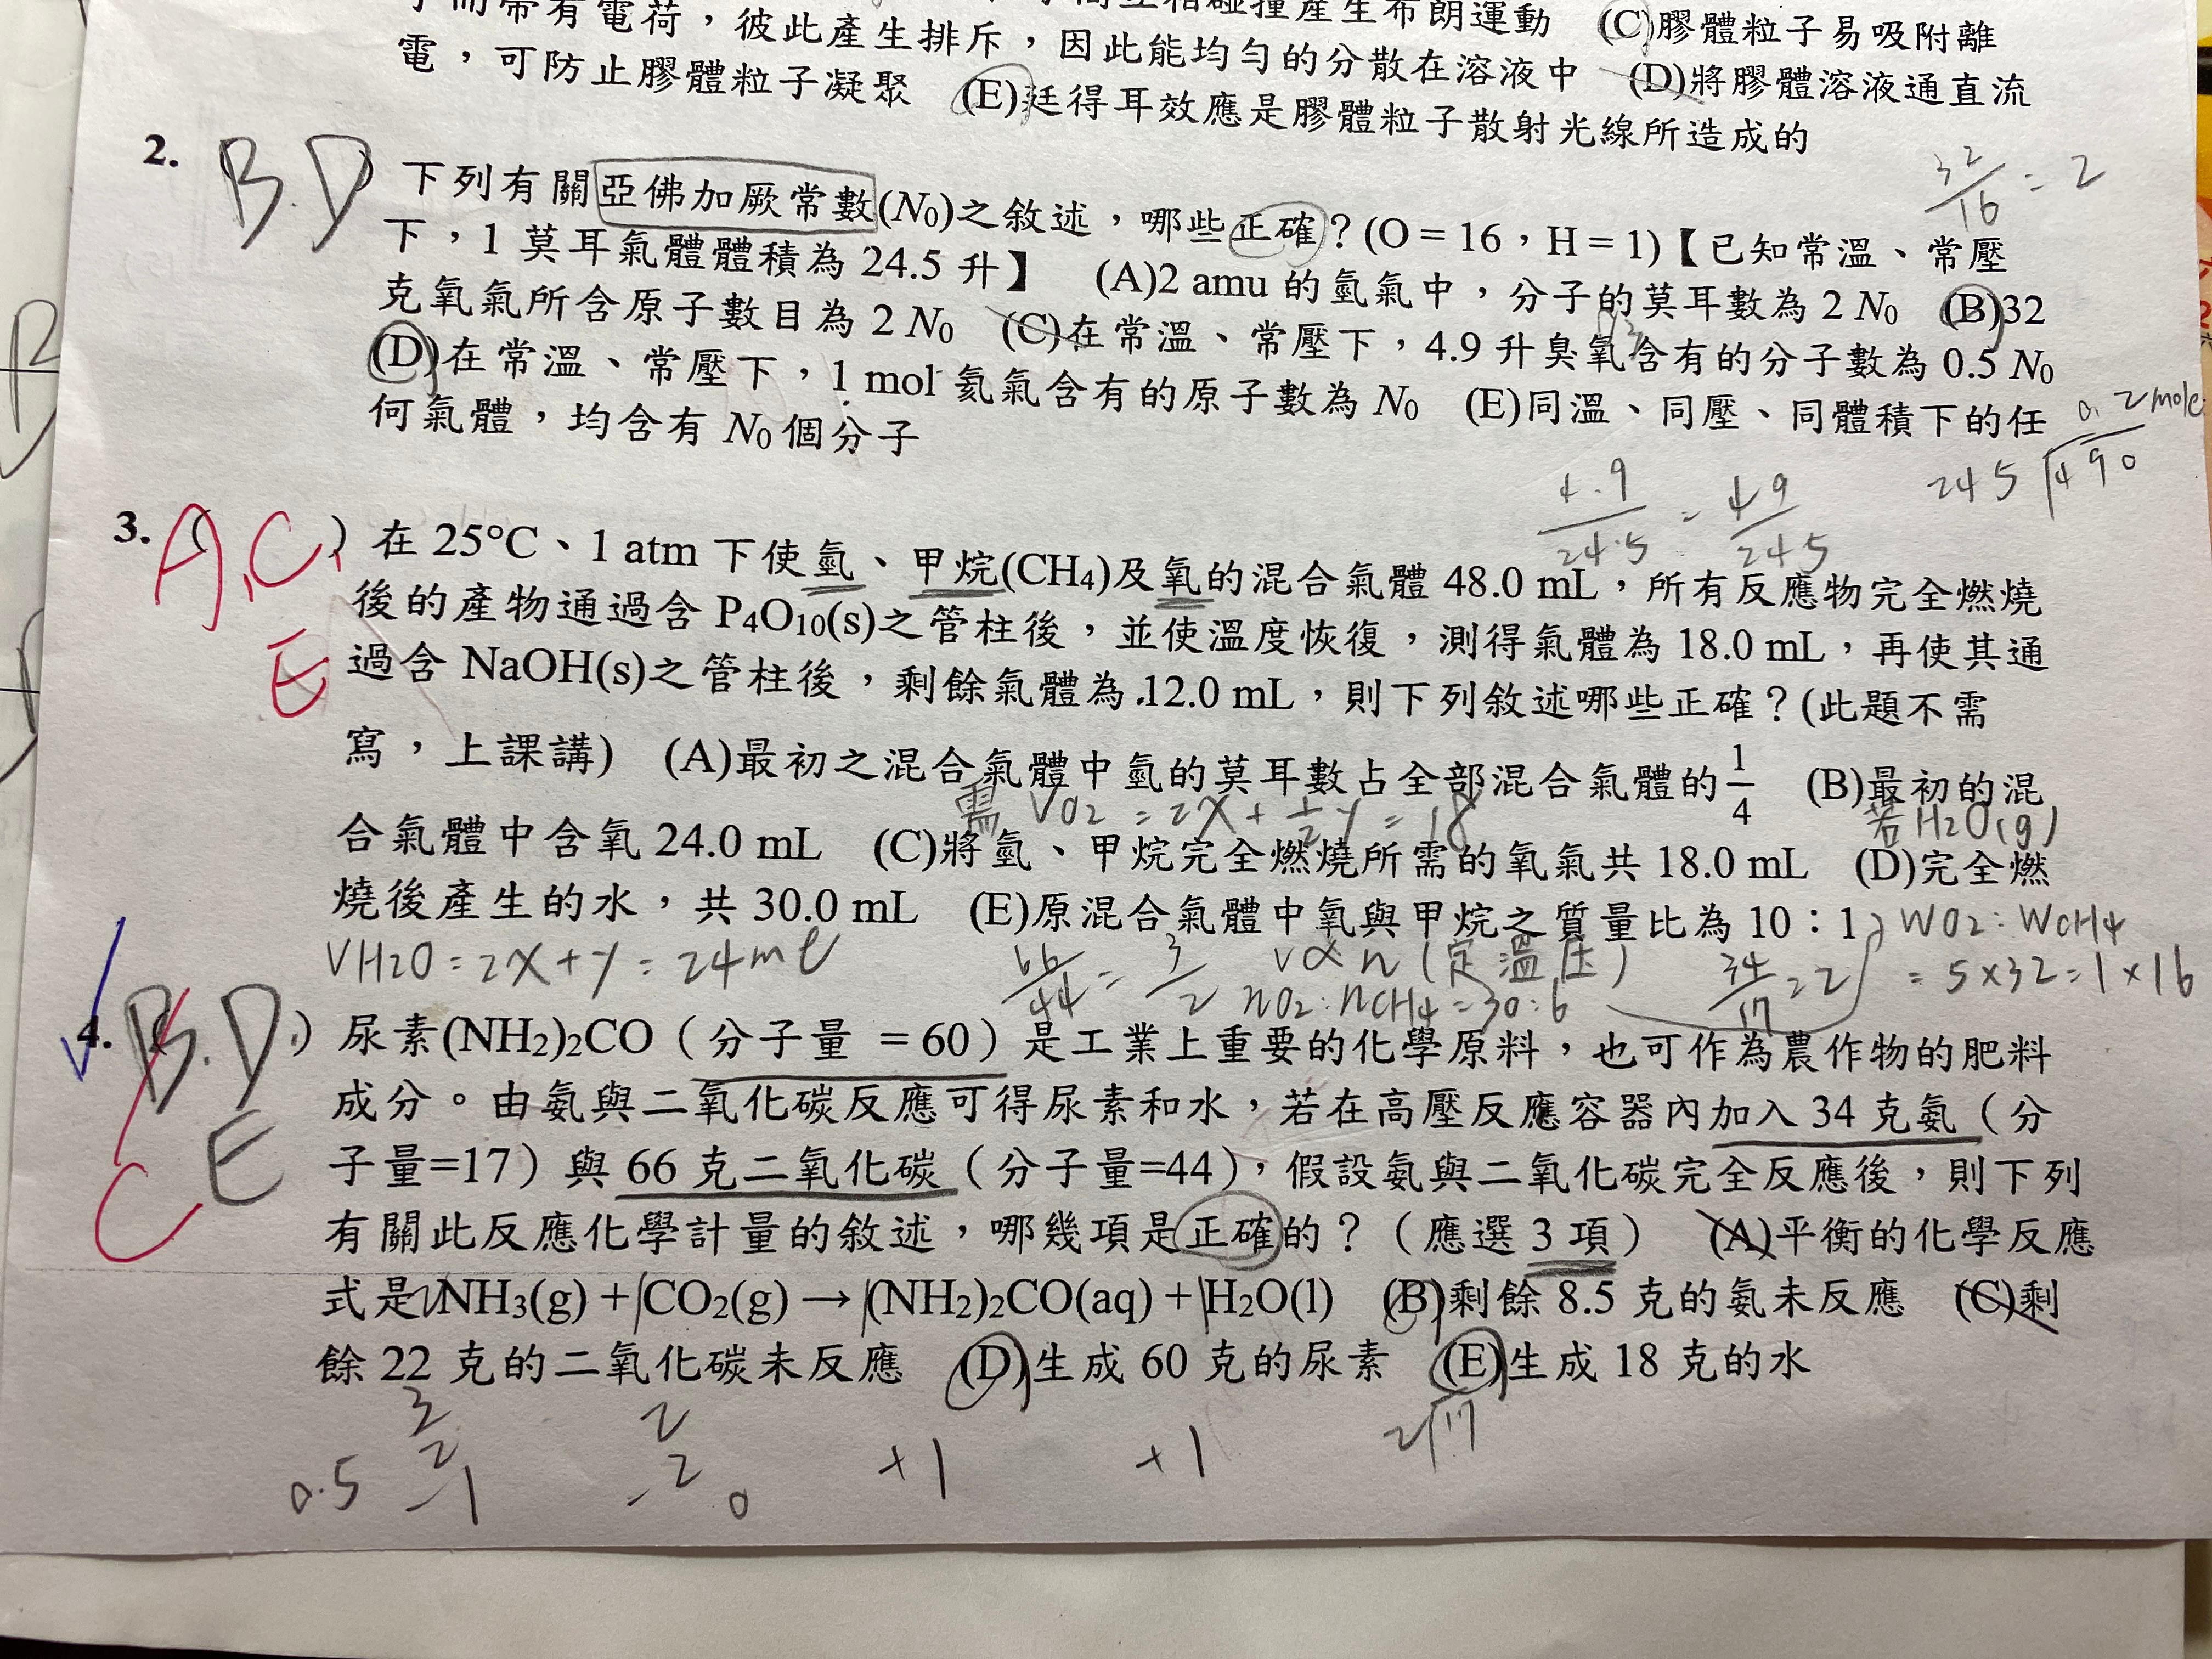 而帶有電荷，彼此產生排斥，因此能均勻的分散在溶液中 (D)將膠體溶液通直流
電，可防止膠體粒子凝聚 (E)廷得耳效應是膠體粒子散射光線所造成的
碰撞產生布朗運動 (C)膠體粒子易吸附離
2. B.D 下列有關亞佛加厥常數(N0)之敘述，哪些正確？(O = 16，H = 1)【已知常溫、常壓
下，1 莫耳氣體體積為 24.5 升】 (A)2 amu 的氫氣中，分子的莫耳數為 2 N0 (B)32
克氧氣所含原子數目為 2 N0 (C)在常溫、常壓下，4.9 升臭氧含有的分子數為 0.5 N0
(D)在常溫、常壓下，1 mol 氦氣含有的原子數為 N0 (E)同溫、同壓、同體積下的任
何氣體，均含有 N0 個分子
32/16 = 2
4.9/24.5 = 49/245
0.2mole
245 490
3. A,C,E ( ) 在 25°C、1 atm 下使氫、甲烷(CH4)及氧的混合氣體 48.0 mL，所有反應物完全燃燒
後的產物通過含 P4O10(s)之管柱後，並使溫度恢復，測得氣體為 18.0 mL，再使其通
過含 NaOH(s)之管柱後，剩餘氣體為.12.0 mL，則下列敘述哪些正確？(此題不需
寫，上課講) (A)最初之混合氣體中氫的莫耳數占全部混合氣體的1/4 (B)最初的混
需 VO2 = 2X + 1/2 y = 18
若H2O(g)
合氣體中含氧 24.0 mL (C)將氫、甲烷完全燃燒所需的氧氣共 18.0 mL (D)完全燃
燒後產生的水，共 30.0 mL (E)原混合氣體中氧與甲烷之質量比為 10：1
VH2O = 2X + y = 24ml
66/44 = 3/2
V∝n (定溫壓)
nO2 : nCH4 = 30 : 6
34/17 = 2
WO2 : WCH4
= 5×32 = 1×16
4. B.D C E ( ) 尿素(NH2)2CO（分子量 = 60）是工業上重要的化學原料，也可作為農作物的肥料
成分。由氨與二氧化碳反應可得尿素和水，若在高壓反應容器內加入 34 克氨（分
子量=17）與 66 克二氧化碳（分子量=44），假設氨與二氧化碳完全反應後，則下列
有關此反應化學計量的敘述，哪幾項是正確的？（應選 3 項） (A)平衡的化學反應
式是 NH3(g) + CO2(g) → (NH2)2CO(aq) + H2O(l) (B)剩餘 8.5 克的氨未反應 (C)剩
餘 22 克的二氧化碳未反應 (D)生成 60 克的尿素 (E)生成 18 克的水
3/2 2 2 17
0.5 -1 -2 0 +1 +1